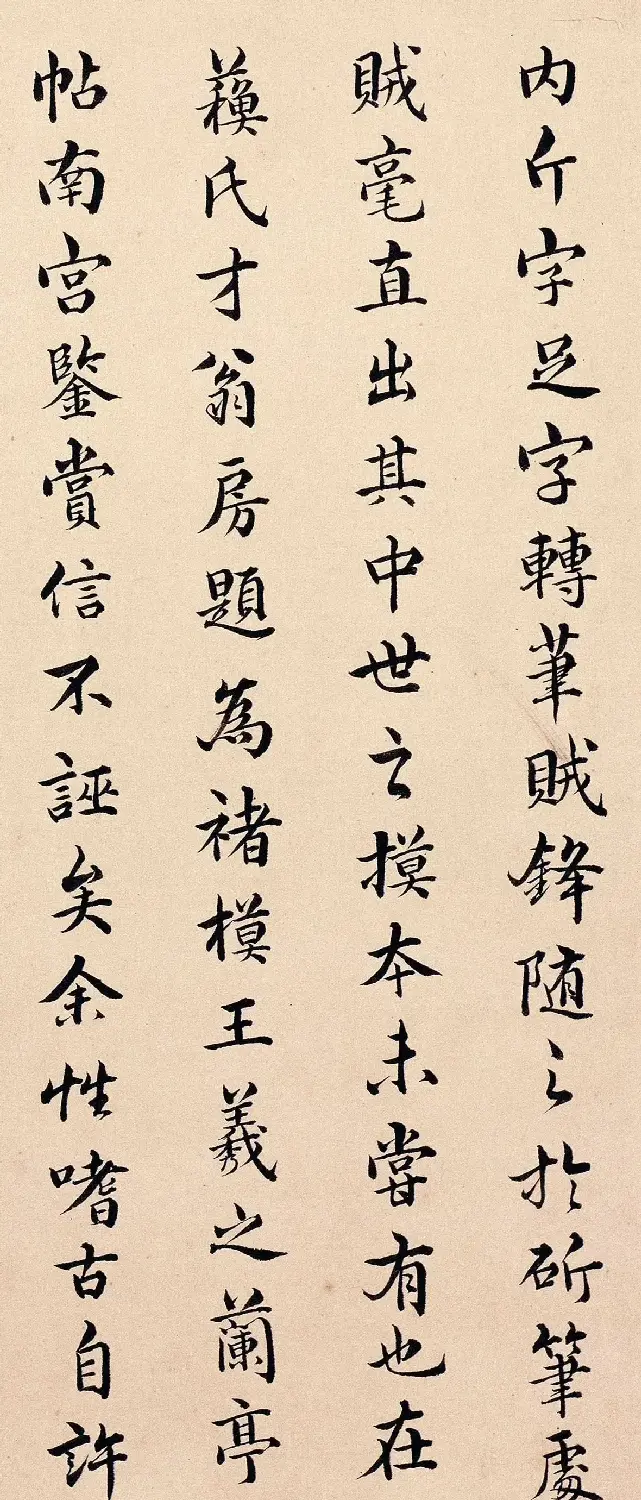 内斤字足字轉筆賊鋒随之於斫筆處
賊毫直出其中世之摸本未嘗有也在
蘓氏才翁房題為褚模王羲之蘭亭
帖南宮鑒賞信不誣矣余性嗜古自許